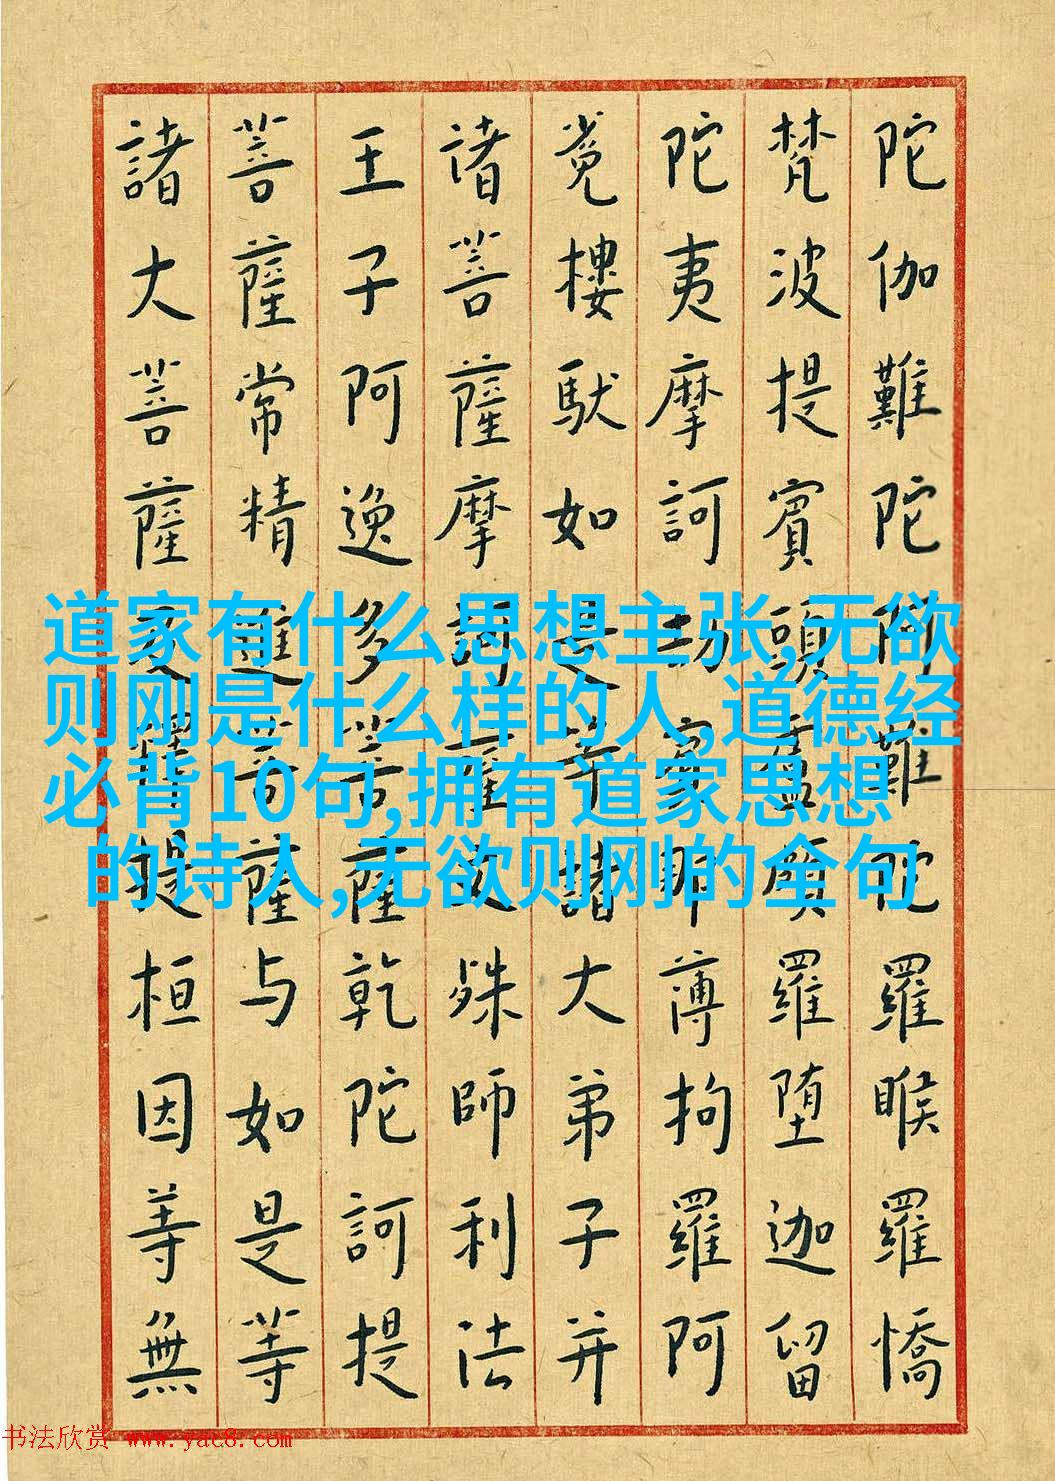 陀伽難陀阿難陀羅睺羅憍
梵波提賓頭盧頗羅堕迦留
陀夷摩訶劫賓那薄拘羅阿
樓馱如是等諸大弟子并
诸菩薩摩訶薩文殊師利法
王子阿逸多菩薩乾陀訶提
菩薩常精進菩薩与如是等
諸大菩薩及釋提桓因等無
道家有什么思想主张,无欲
则刚是什么样的人,道德经
必背10句,拥有道家思想
的诗人,无欲则刚的全句
书法欣赏 www.yac8.com